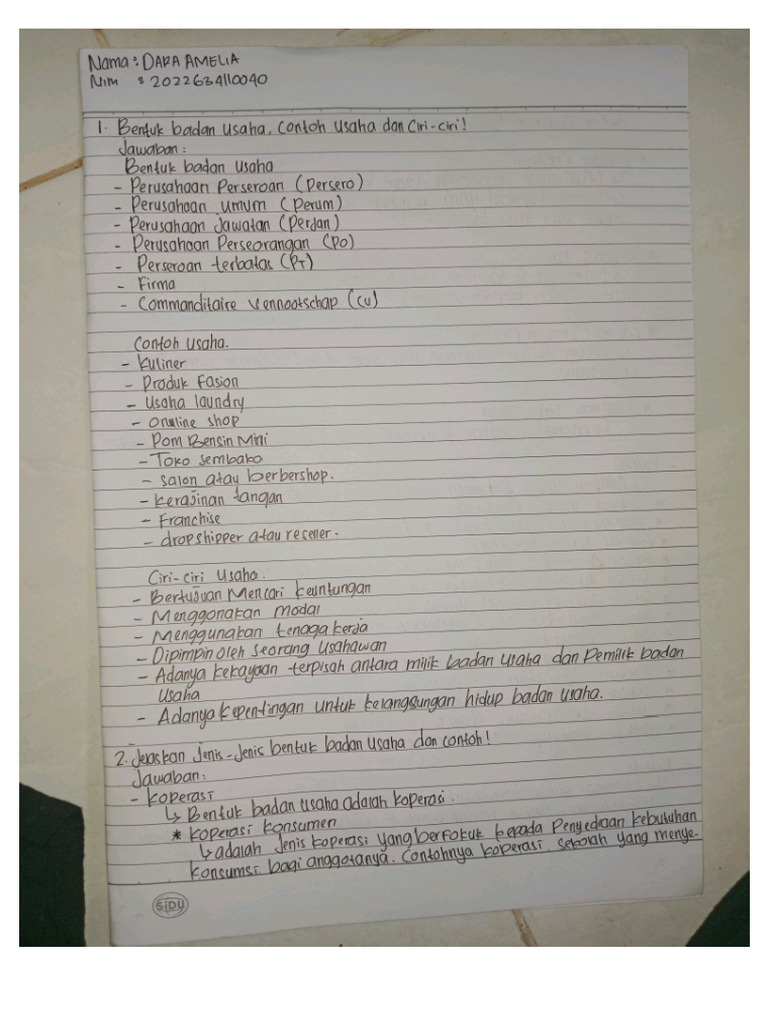 Nama : DARA AMELIA
NIM : 2022634110040
1. Bentuk badan usaha, Contoh Usaha dan Ciri-ciri!
Jawaban :
Bentuk badan usaha
- Perusahaan Perseroan (Persero)
- Perusahaan umum (Perum)
- Perusahaan Jawatan (Perjan)
- Perusahaan Perseorangan (PO)
- Perseroan terbatas (PT)
- Firma
- Commanditaire Vennootschap (CV)
Contoh Usaha.
- Kuliner
- Produk Fasion
- Usaha laundry
- Onuline shop
- Pom Bensin Mini
- Toko Sembako
- Salon atay berbershop.
- Kerajinan tangan
- Franchise
- dropshipper atau reseller.
Ciri-ciri Usaha.
- Bertujuan Mencari Keuntungan
- Menggonakan modal
- Menggunakan tenaga kerja
- Dipimpin oleh seorang usahawan
- Adanya kekayaan terpisah antara milik badan usaha dan Pemilik badan
usaha
- Adanya kepentingan untuk kelangsungan hidup badan usaha.
2. Jelaskan Jenis-Jenis bentuk badan usaha dan contoh!
Jawaban :
- Koperasi
↳ Bentuk badan usaha adalah koperasi.
* Koperasi Konsumen
↳ adalah Jenis koperasi yang berfokuk kepada Penyediaan kebutuhan
konsumsi bagi anggotanya. Contohnya koperasi sekolah yang menye-
SiDU